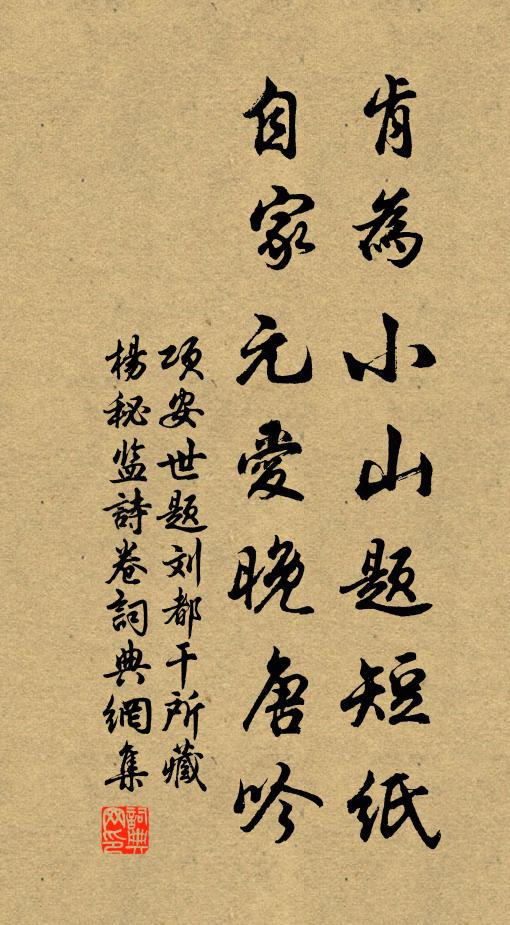 肯為小山题短紙
自家元愛晚唐吟
项安世题刘都干所藏
楊秘监詩卷詞典網集
詞典網印